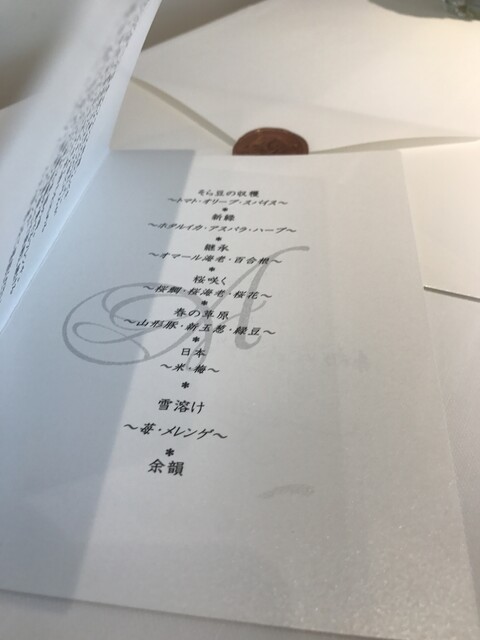 そら豆の収穫
～トマト・オリーブ・スパイス～
*
新緑
～ホタルイカ・アスパラ・ハーブ～
*
継承
～オマール海老・百合根～
*
桜咲く
～桜鯛・桜海老・桜花～
*
春の草原
～山形豚・新玉葱・緑豆～
*
日本
～米・梅～
*
雪溶け
～苺・メレンゲ～
*
余韻
A